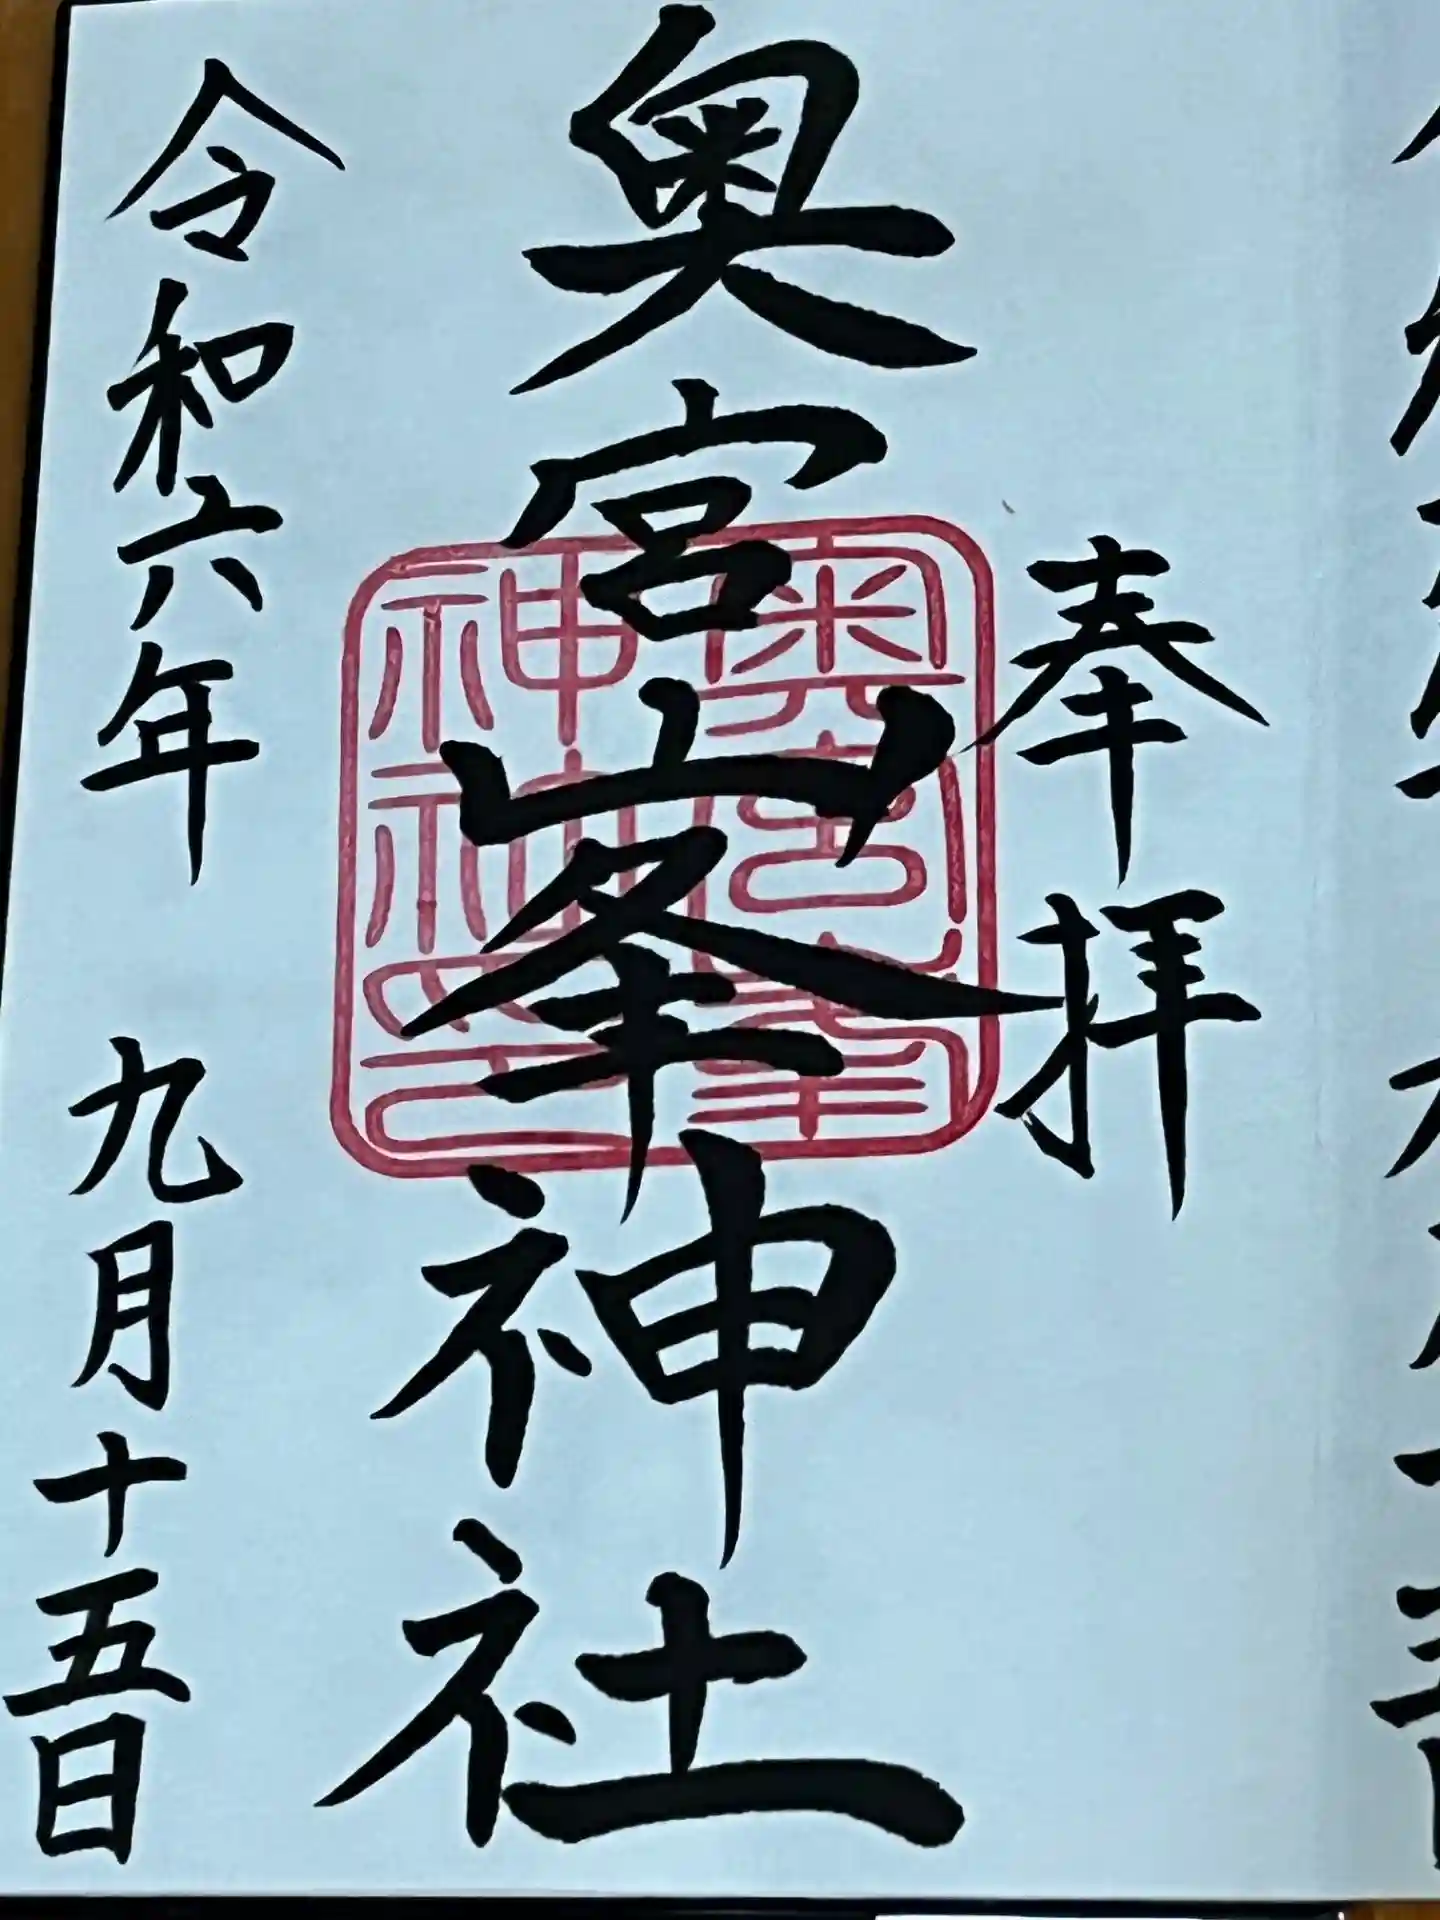 奉拝
奥宮峯神社
奥宮峯
神社印
令和六年 九月十五日